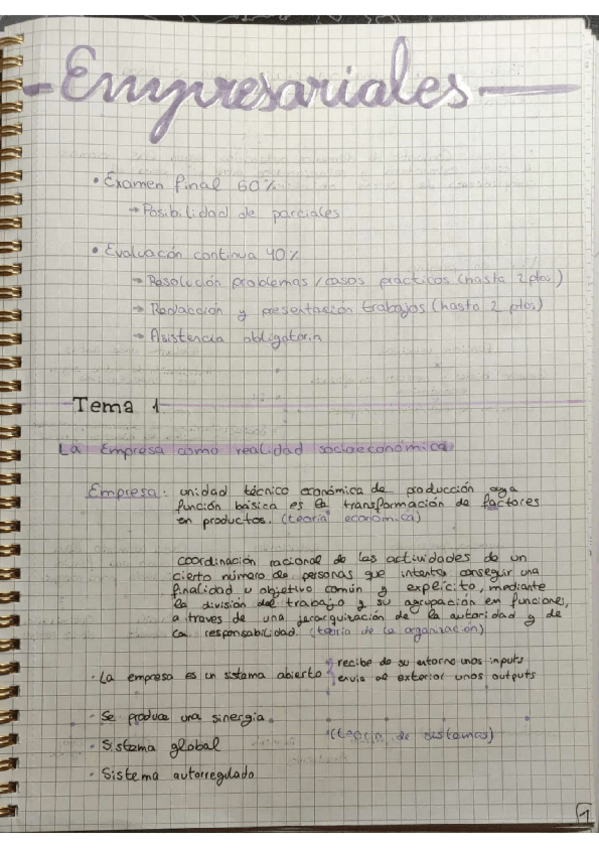 Empresariales
• Examen final 60%
→ Posibilidad de parciales
• Evaluación continua 40%
→ Resolución problemas / casos prácticos (hasta 2 ptos.)
→ Redacción y presentación trabajos (hasta 2 ptos)
→ Asistencia obligatoria
Tema 1
La Empresa como realidad socioeconómica
Empresa: unidad técnico económica de producción cuya
función básica es la transformación de factores
en productos. (teoría económica)
coordinación racional de las actividades de un
cierto número de personas que intenta conseguir una
finalidad u objetivo común y explícito, mediante
la división del trabajo y su agrupación en funciones,
a traves de una jerarquización de la autoridad y de
la responsabilidad. (teoría de la organización)
· La empresa es un sistema abierto
recibe de su entorno unos inputs
envia al exterior unos outputs
· Se produce una sinergia.
· Sistema global
(teoría de sistemas)
· Sistema autorregulado
1